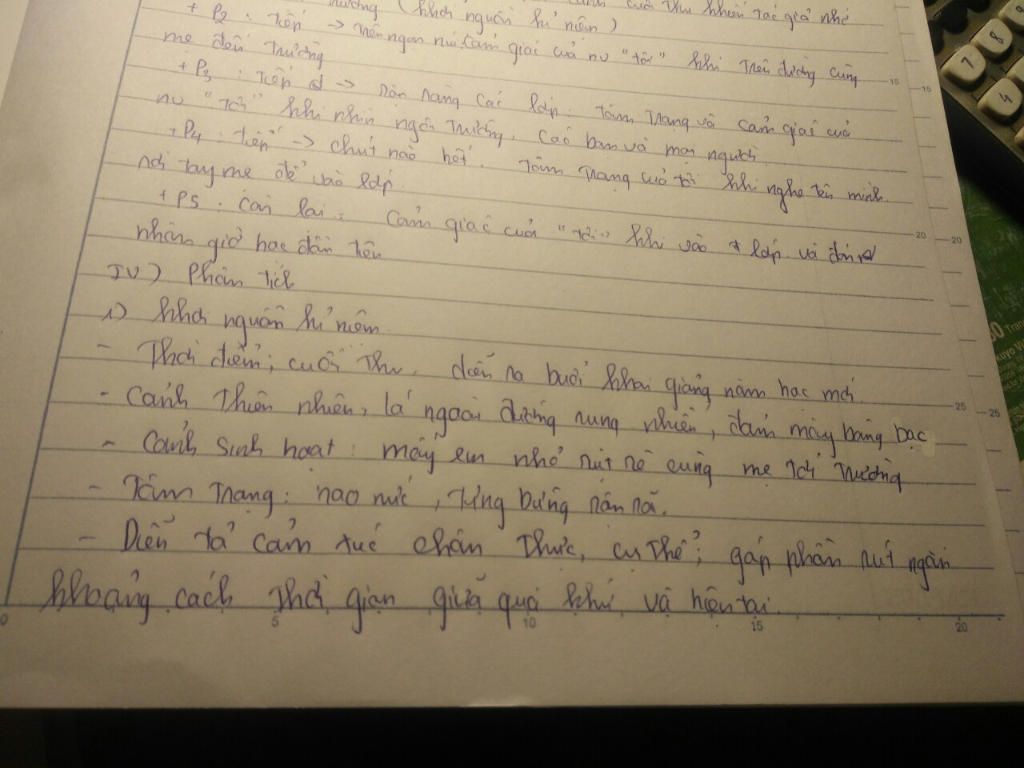 tường (khơi nguồn kỉ niệm)
+ P2 : tiếp → trên ngọn núi cảm giác của nv "tôi" khi trên đường cùng
mẹ đến trường
+ P3 : tiếp → các lớp : tâm trạng và cảm giác của
nv "tôi" khi nhìn ngôi trường, các bạn và mọi người
+ P4 : tiếp → chút nào hết. Tâm trạng của tôi khi nghe tên mình
rời tay mẹ để vào lớp.
+ P5 : còn lại : cảm giác của "tôi" khi vào lớp và đón
nhận giờ học đầu tiên
IV) Phân tích
1) Khơi nguồn kỉ niệm
- Thời điểm; cuối thu, diễn ra buổi khai giảng năm học mới.
- Cảnh thiên nhiên, lá ngoài đường rụng nhiều, đám mây bàng bạc
- Cảnh sinh hoạt : mấy em nhỏ rụt rè cùng mẹ tới trường
- Tâm trạng : nao nức, tưng bừng rộn rã.
- Diễn tả cảm xúc chân thực, cụ thể; góp phần rút ngắn
khoảng cách thời gian giữa quá khứ và hiện tại.
0 5 10 15 20
15 15
20 20
25 25
7 8 4